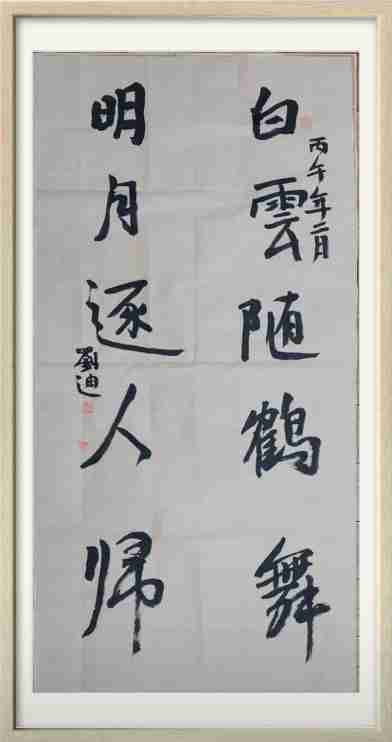 丙午年二月
白雲随鶴舞
明月逐人归
劉迪